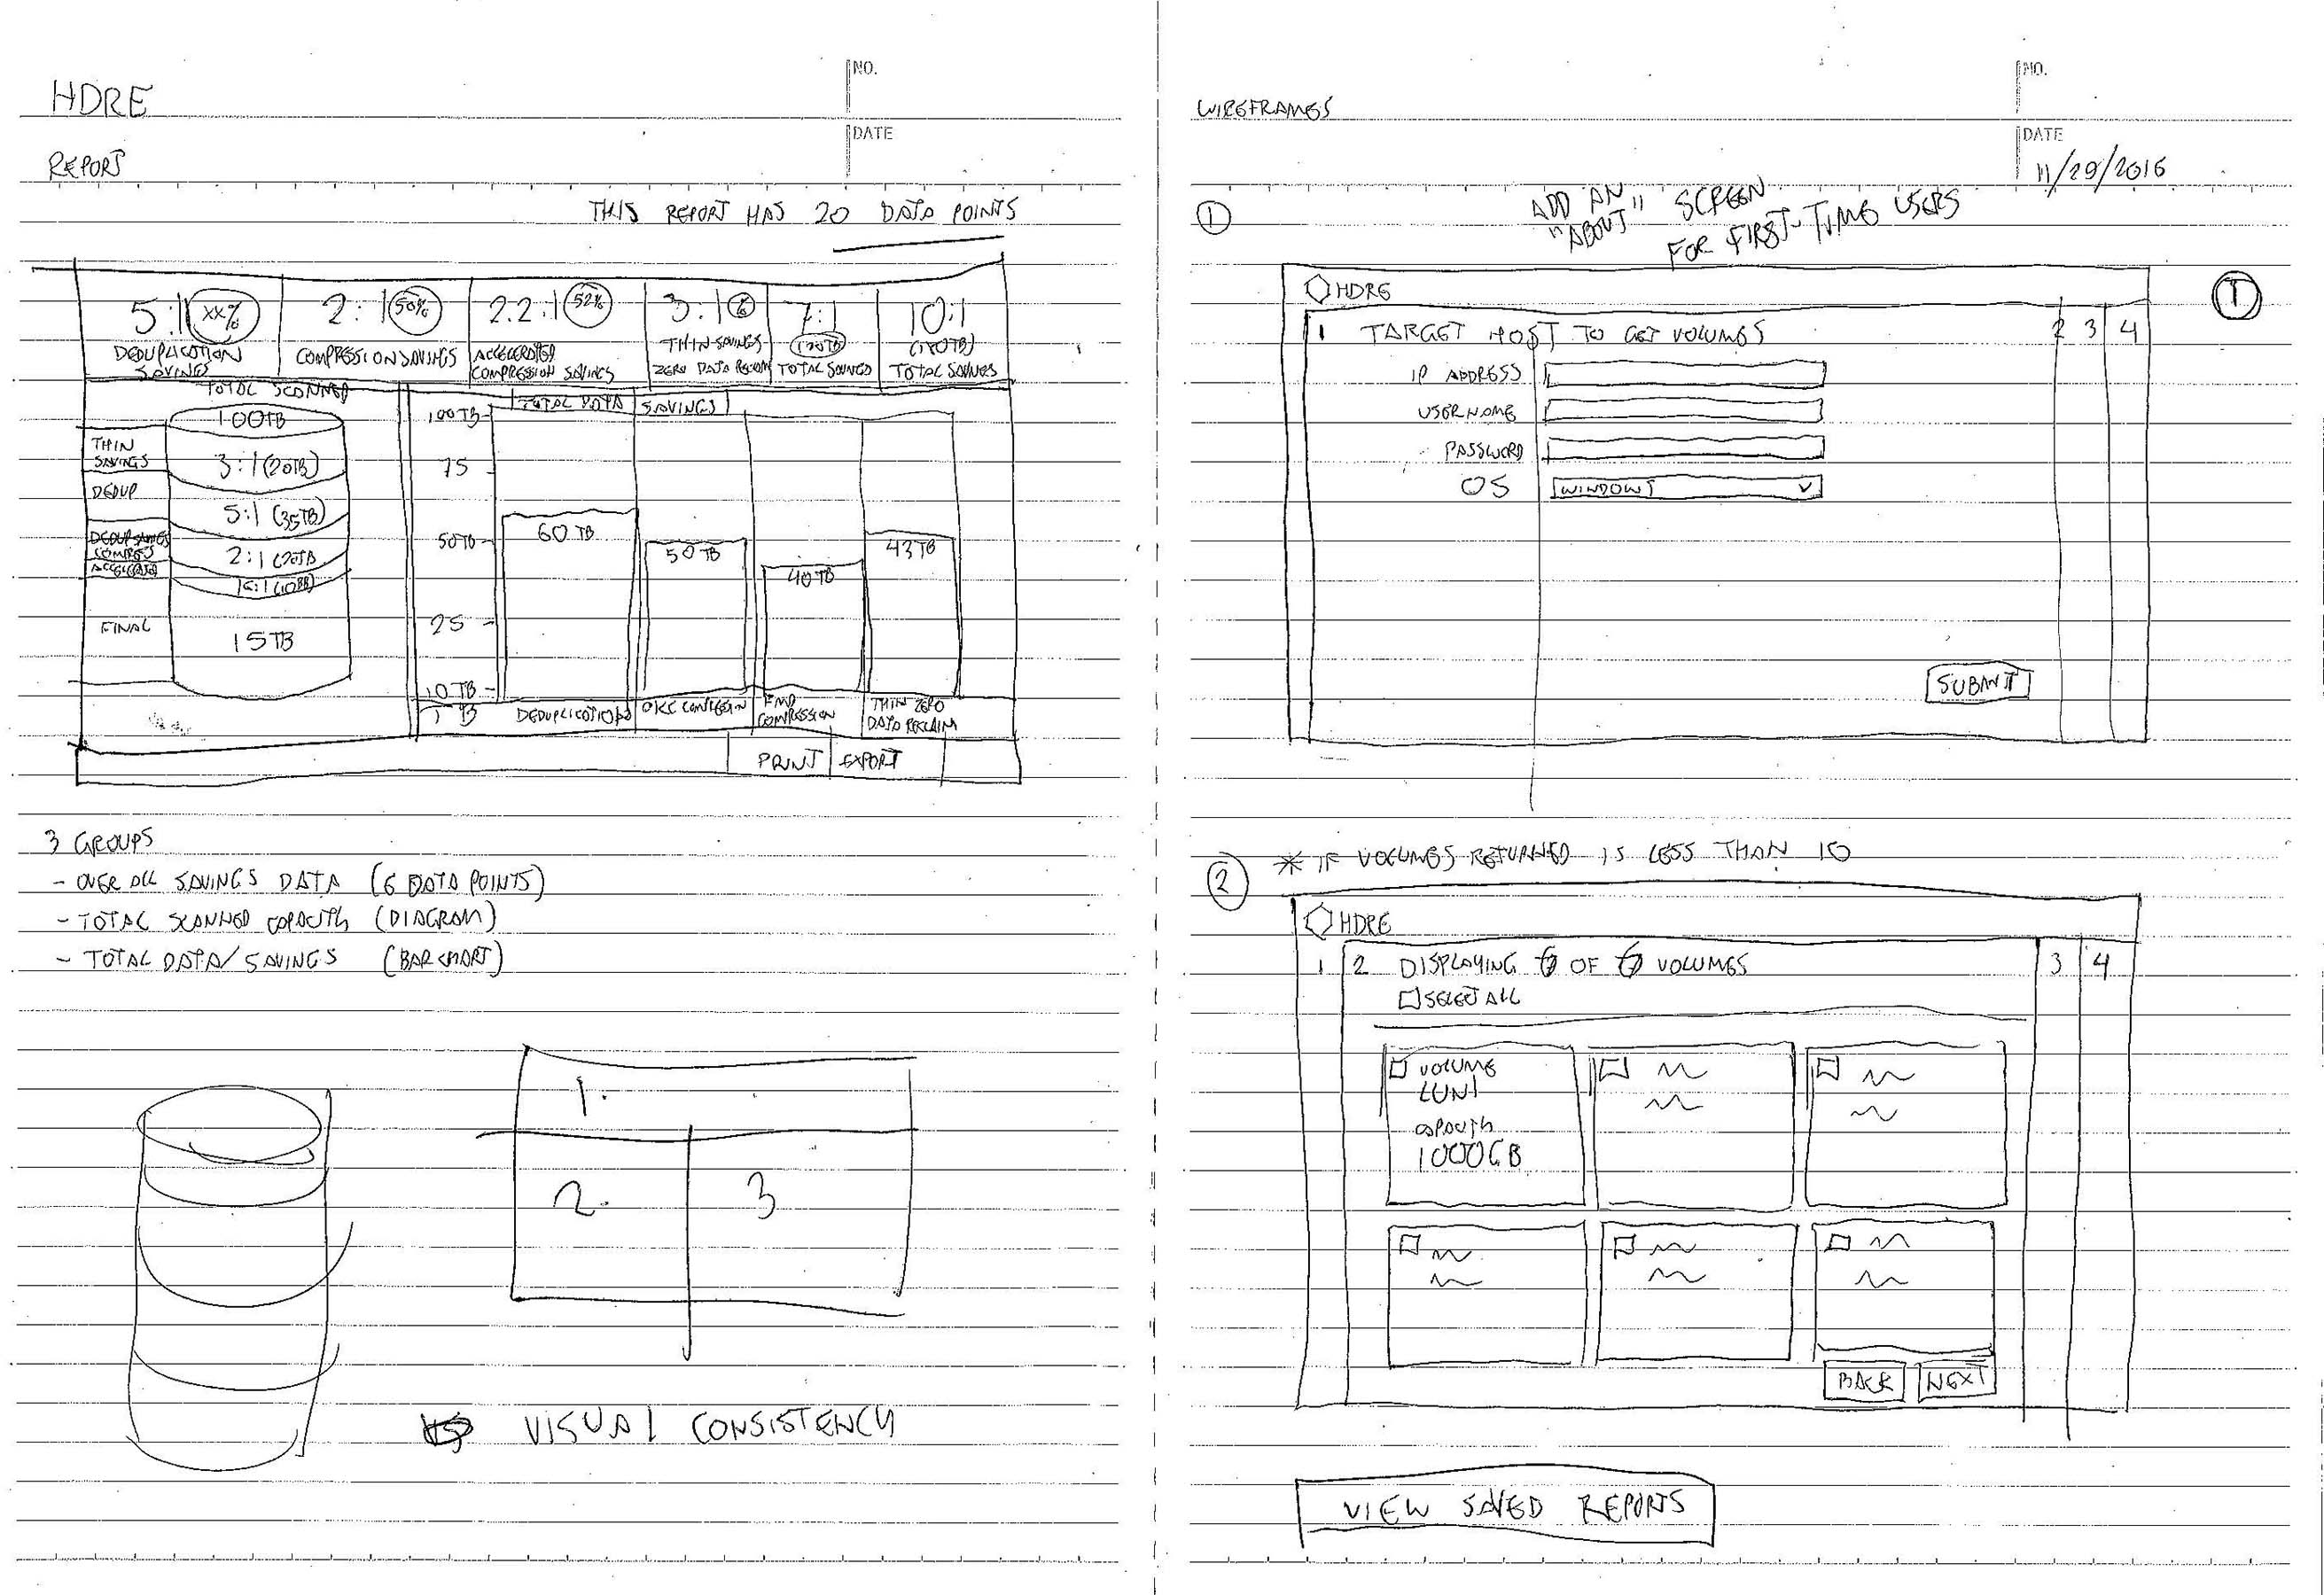 NO.
HDRE
DATE
REPORT
THIS REPORT HAS 20 DATA POINTS
5:1 XX%
DEDUPLICATION
SAVINGS
2:1 50%
COMPRESSION SAVINGS
2.2:1 52%
ACCELERATED
COMPRESSION SAVINGS
3:1
THIN SAVINGS
ZERO DATA RECLAIM
7:1
TOTAL SAVINGS
10:1
TOTAL SAVINGS
TOTAL SCANNED
100TB
THIN
SAVINGS
3:1 (20TB)
DEDUP
5:1 (35TB)
2:1 (20TB
FINAL
15TB
TOTAL DATA SAVINGS
100TB
75
50TB
25
10TB
60TB
50TB
40TB
43TB
DEDUPLICATION
COMPRESSION
FMD
COMPRESSION
THIN ZERO
DATA RECLAIM
PRINT EXPORT
3 GROUPS
- OVERALL SAVINGS DATA (6 DATA POINTS)
- TOTAL SCANNED CAPACITY (DIAGRAM)
- TOTAL DATA/SAVINGS (BAR CHART)
1.
2. 3
VISUAL CONSISTENCY
NO.
WIREFRAMES
DATE
11/29/2016
1
ADD AN
"ABOUT" SCREEN
FOR FIRST-TIME USERS
HDRE
1 TARGET HOST TO GET VOLUMES 2 3 4
IP ADDRESS
USERNAME
PASSWORD
OS WINDOWS
SUBMIT
1
2 * IF VOLUMES RETURNED IS LESS THAN 10
HDRE
1 2 DISPLAYING OF VOLUMES 3 4
SELECT ALL
VOLUME
LUN1
CAPACITY
1000GB
BACK NEXT
VIEW SAVED REPORTS